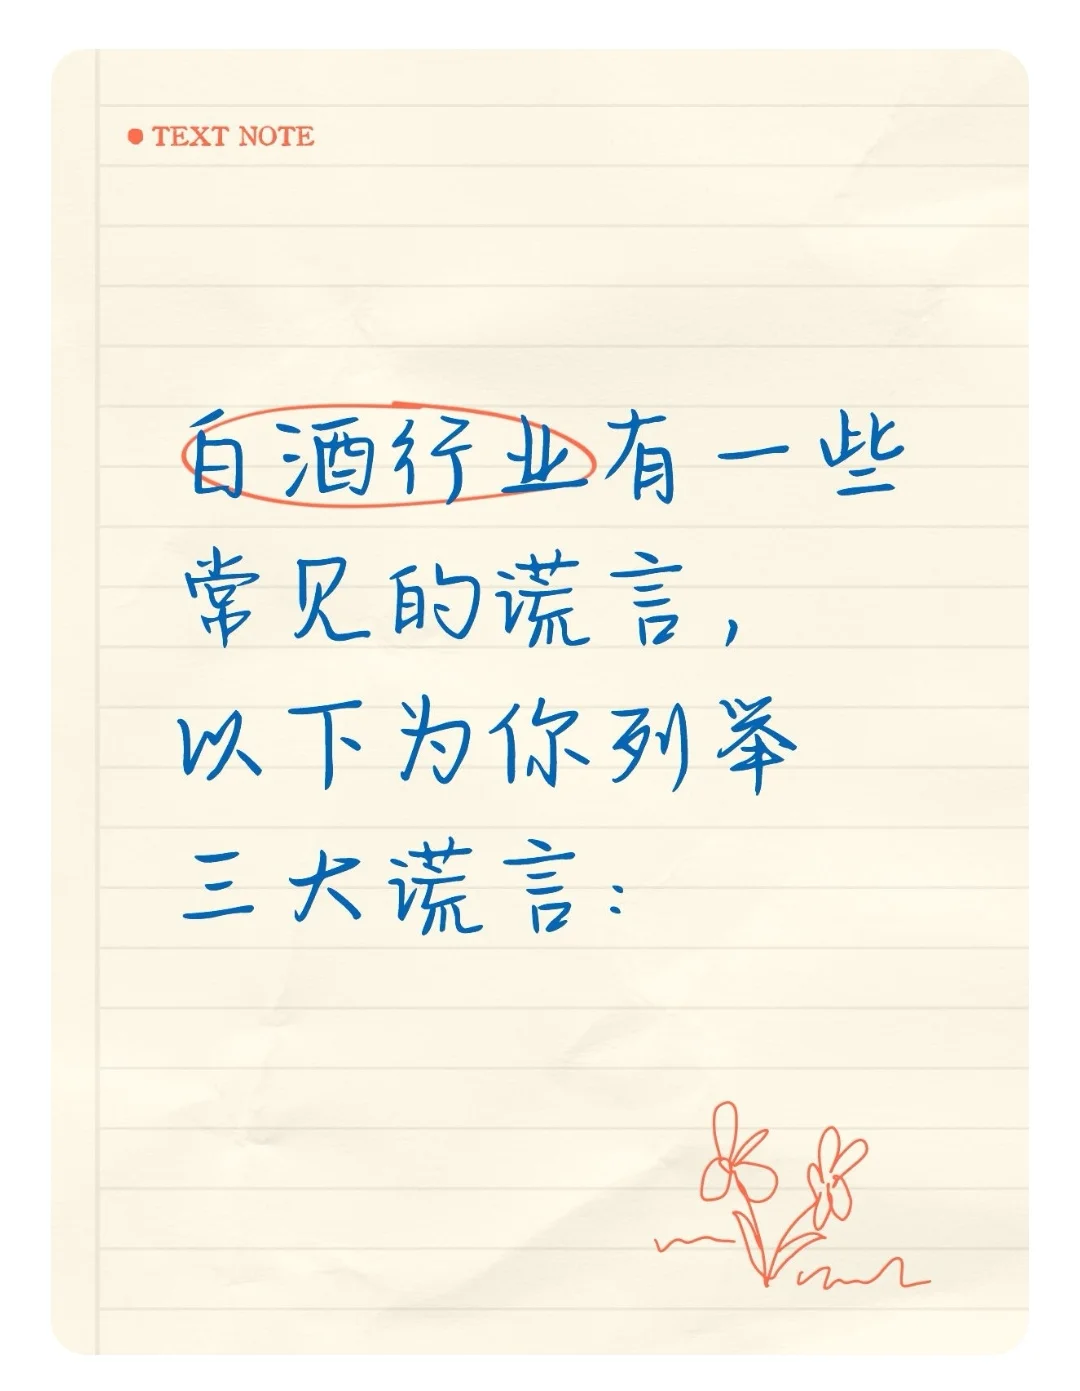 TEXT NOTE
白酒行业有一些
常见的谎言，
以下为你列举
三大谎言：